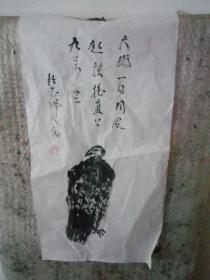 大鹏一日同风
起扶摇直上
九万里